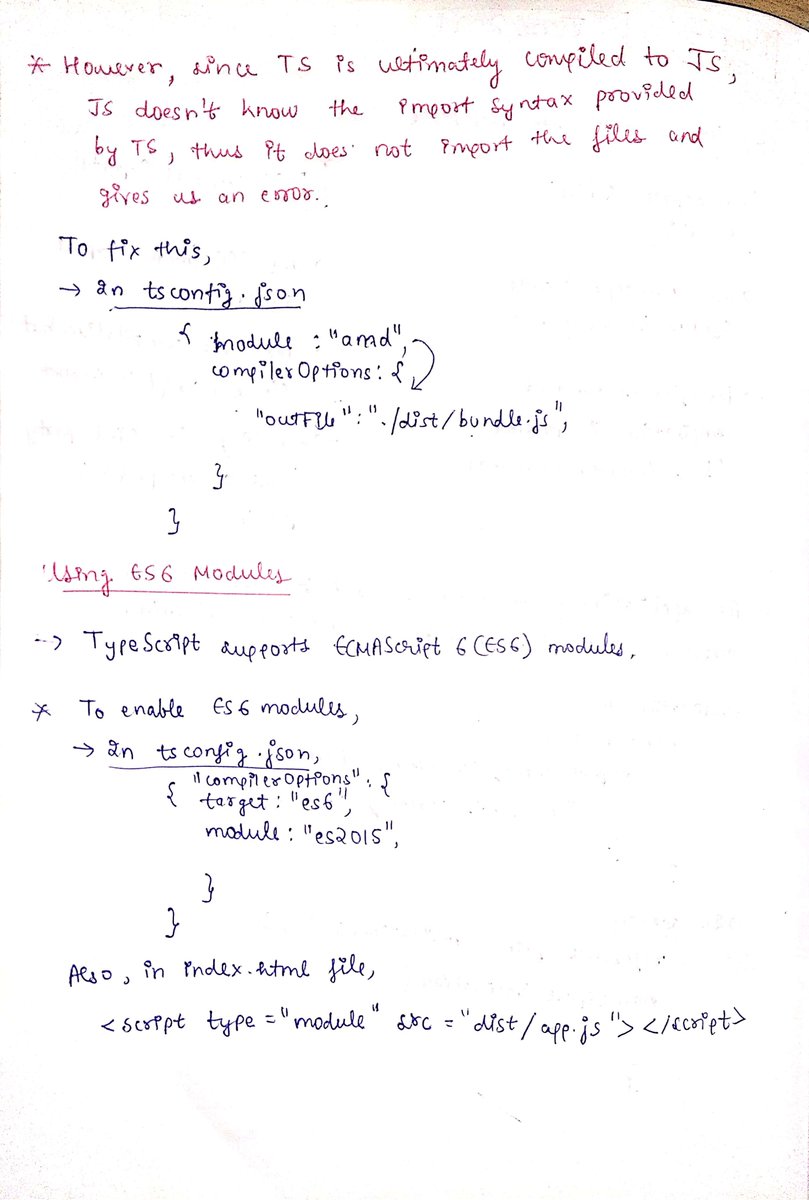 * However, since TS is ultimately compiled to JS,
JS doesn't know the import syntax provided
by TS, thus it does not import the files and
gives us an error.
To fix this,
→ In tsconfig.json
{ module : "amd",
compilerOptions: {
"outFile" : "./dist/bundle.js",
}
}
Using ES6 Modules
--> TypeScript supports ECMAScript 6 (ES6) modules.
* To enable ES6 modules,
→ In tsconfig.json,
"compilerOptions" : {
{ target : "es6",
module : "es2015",
}
}
Also, in index.html file,
<script type = "module" src = "dist/app.js"> </script>